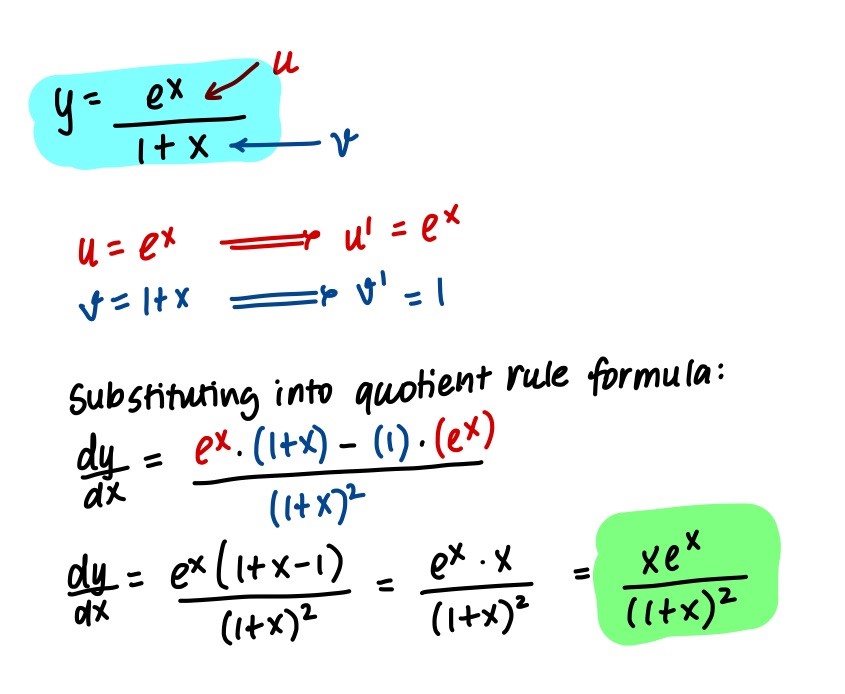 y = e^x / (1 + x)
u
v
u = e^x ⟹ u' = e^x
v = 1+x ⟹ v' = 1
Substituting into quotient rule formula:
dy/dx = (e^x · (1+x) − (1) · (e^x)) / (1+x)^2
dy/dx = e^x (1+x−1) / (1+x)^2 = e^x · x / (1+x)^2 = xe^x / (1+x)^2